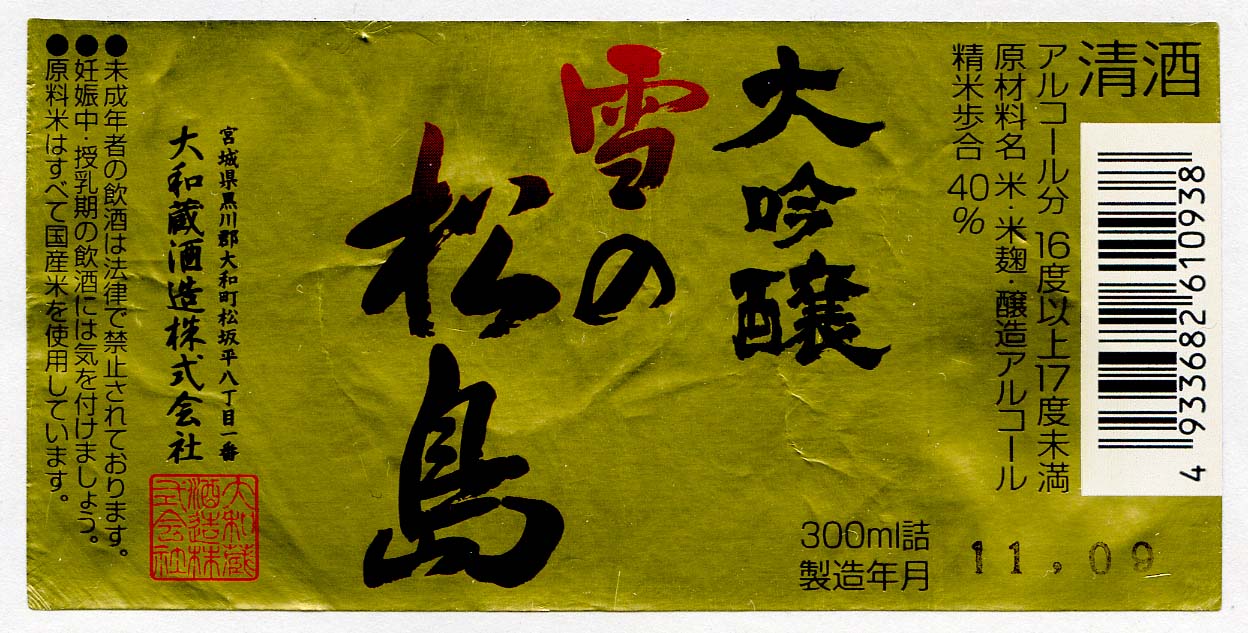 清酒
アルコール分 16度以上17度未満
原材料名 米・米麹・醸造アルコール
精米歩合 40%
4 933682 610938
300ml詰
製造年月
11,09
大吟醸
雪の
松島
宮城県黒川郡大和町松坂平八丁目一番
大和蔵酒造株式会社
大和蔵
酒造株
式会社
●未成年者の飲酒は法律で禁止されております。
●妊娠中・授乳期の飲酒には気を付けましょう。
●原料米はすべて国産米を使用しています。